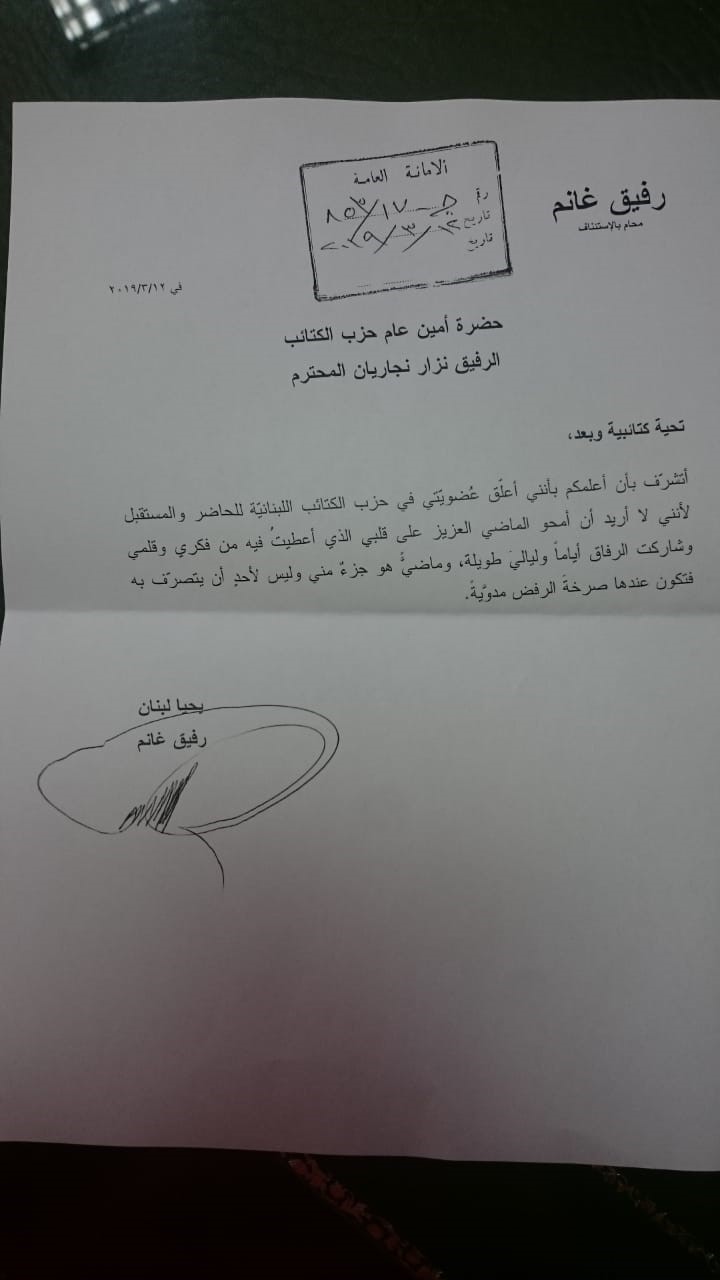 رفيق غانم
محام بالإستئناف
الامانة العامة
رقم ٨٥٣/١٧
تاريخ ١٢/٣/٢٠١٩
تاريخ
في ٢٠١٩/٣/١٢
حضرة أمين عام حزب الكتائب
الرفيق نزار نجاريان المحترم
تحية كتائبية وبعد،
أتشرّف بأن أعلمكم بأنني أعلّق عُضويّتي في حزب الكتائب اللبنانيّة للحاضر والمستقبل
لأنني لا أريد أن أمحو الماضي العزيز على قلبي الذي أعطيتُ فيه من فكري وقلمي
وشاركت الرفاق أياماً ولياليَ طويلة، وماضيَّ هو جزءٌ مني وليس لأحدٍ أن يتصرّف به
فتكون عندها صرخةَ الرفض مدوّيةً.
يحيا لبنان
رفيق غانم